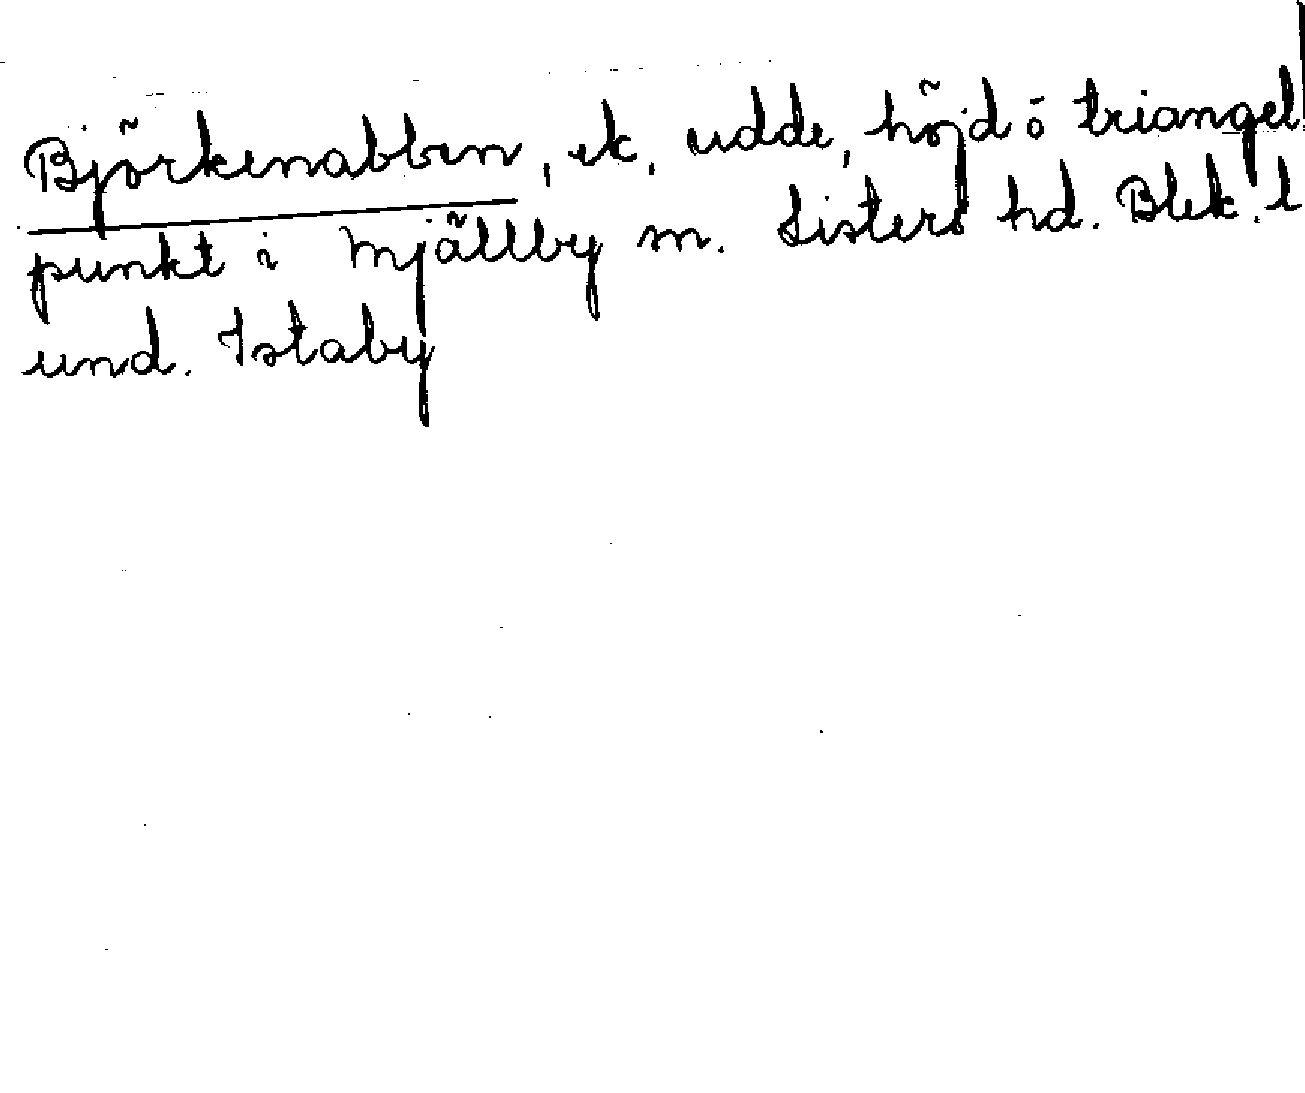 Björkenabben, ek, udde, höjd ö triangel
punkt i Mjällby sn. Listers hd. Blek. l
und. Istaby